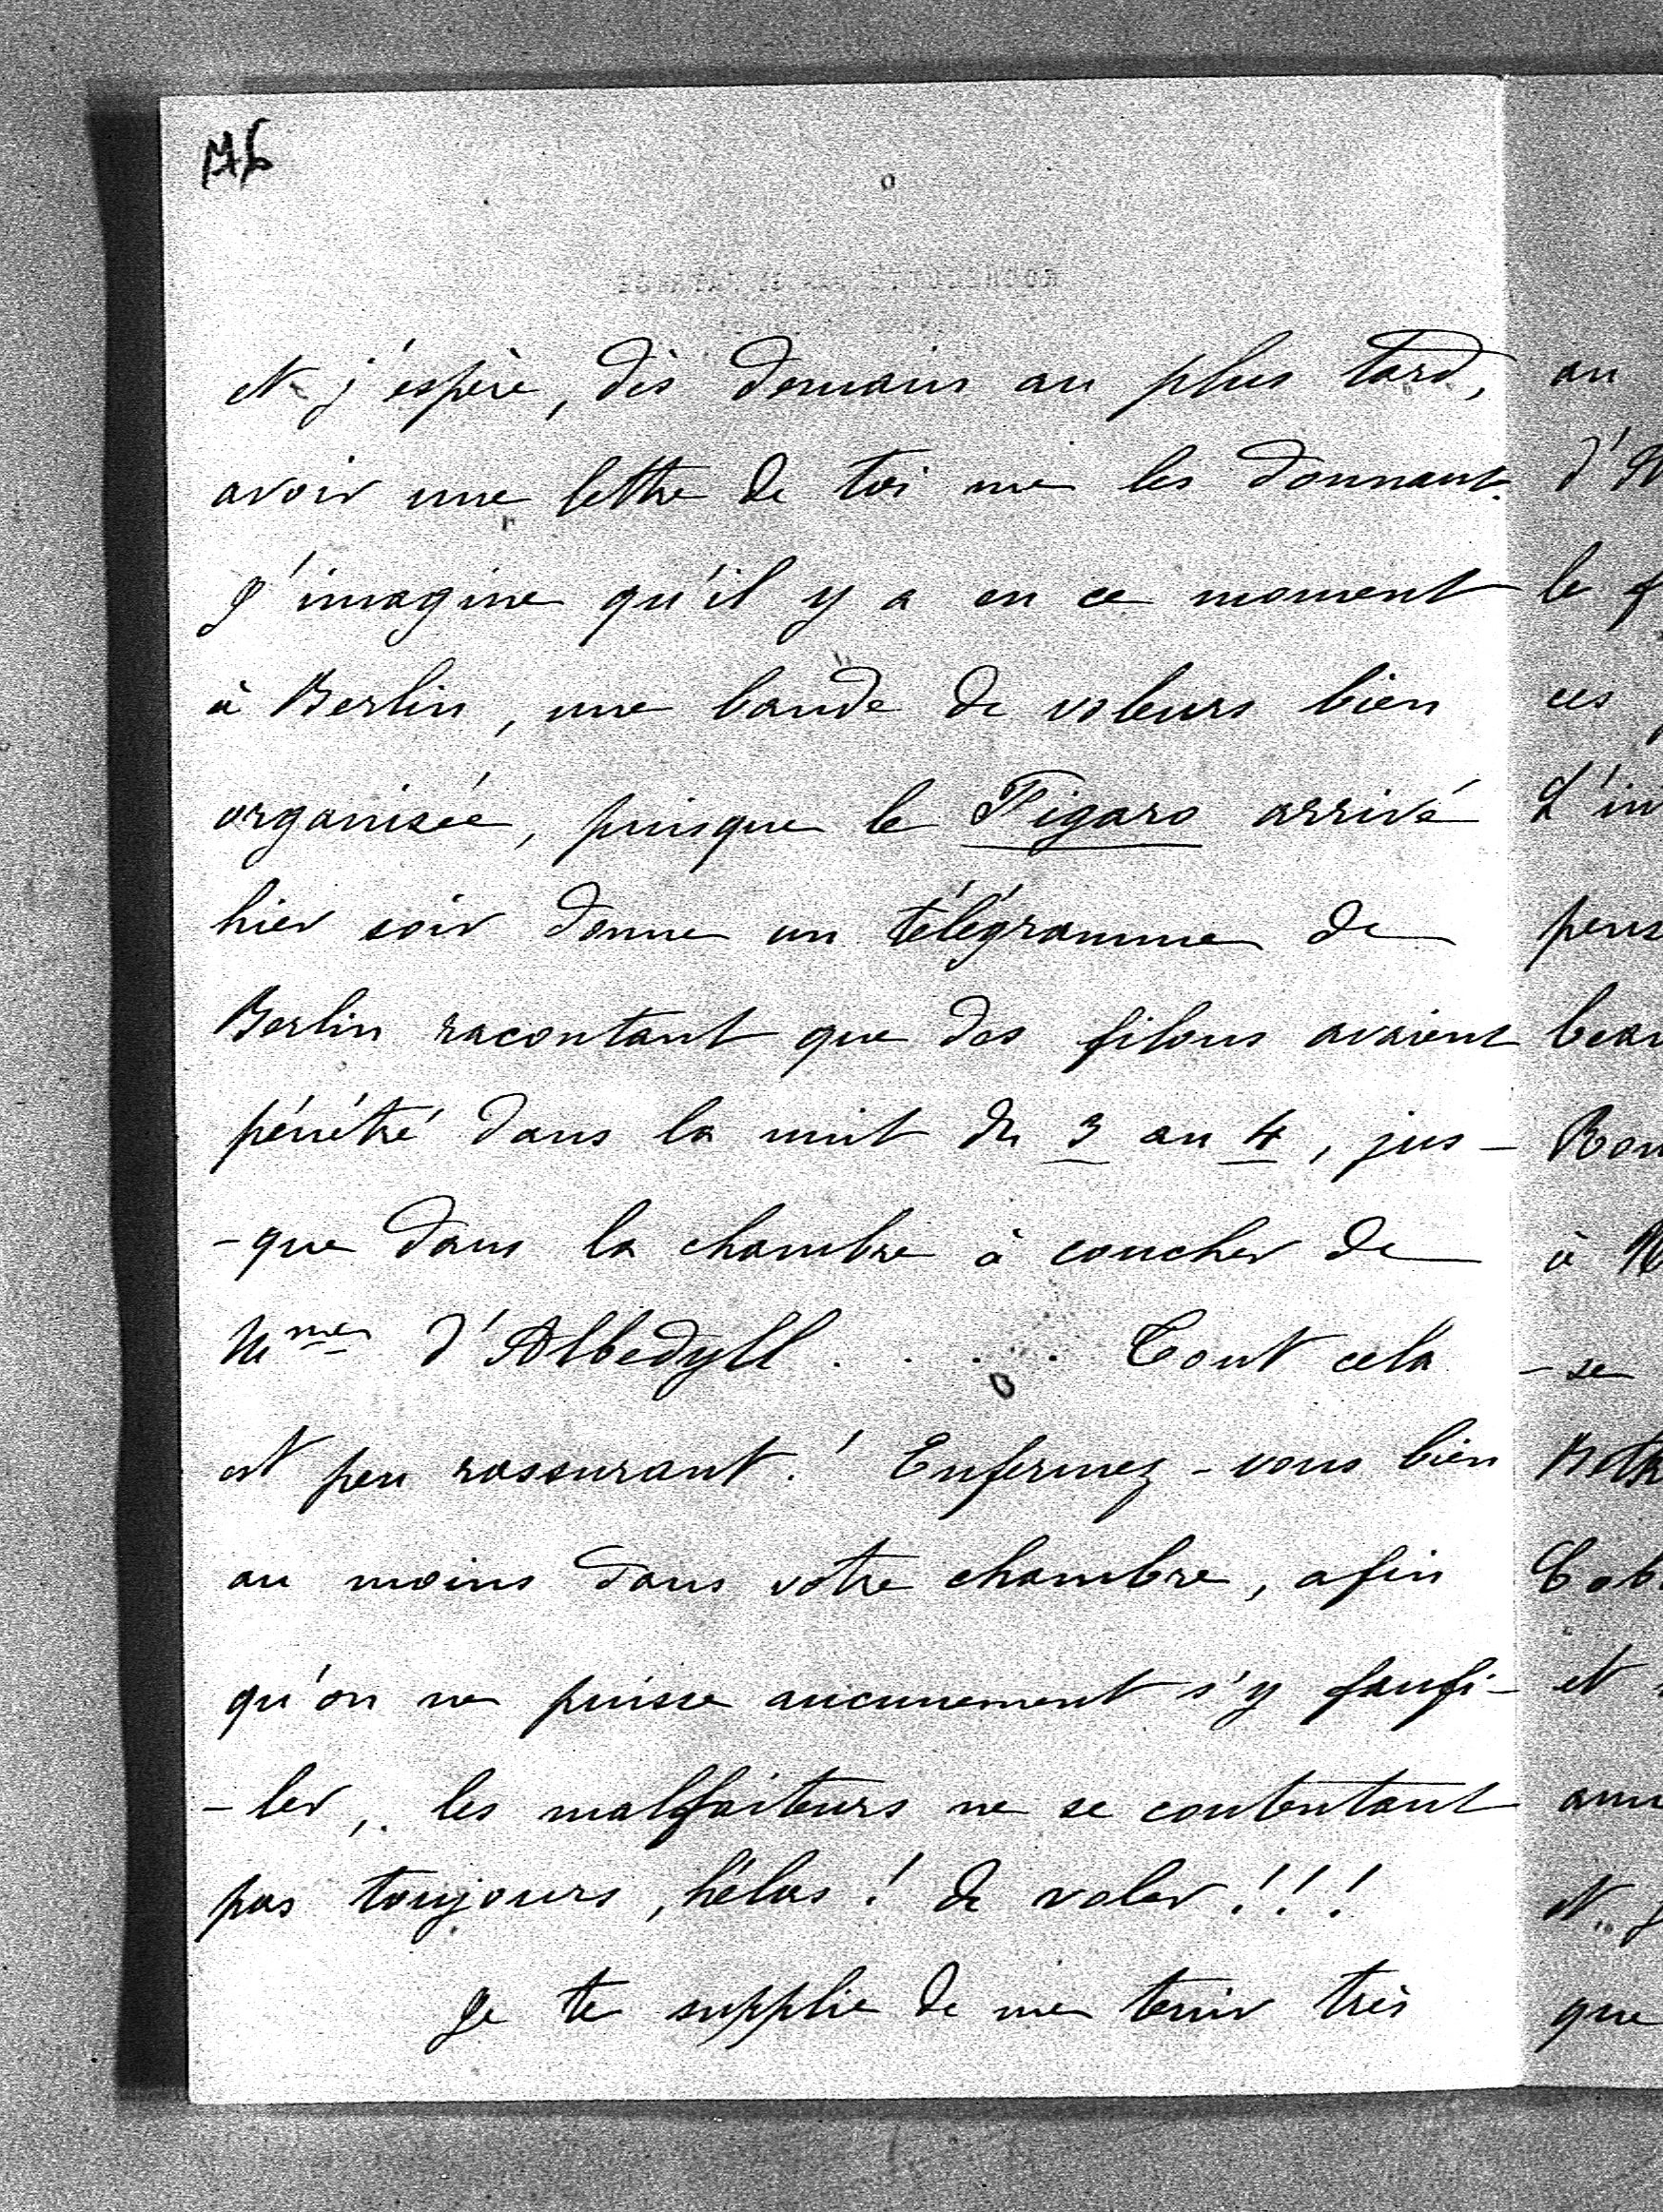 et j'espère, dès demain au plus tard,
avoir une lettre de toi me les donnant.
J'imagine qu'il y a en ce moment
à Berlin, une bande de voleurs bien
organisée, puisque le Figaro arrivé
hier soir donne un télégramme de
Berlin racontant que des filous avaient
pénétré dans la nuit du 3 au 4, jus-
-que dans la chambre à coucher de
Mme d'Albedyll . . . . . Tout cela
est peu rassurant! Enfermez-vous bien
au moins dans votre chambre, afin
qu'on ne puisse aucunement s'y faufi-
-ler, les malfaiteurs ne se contentant
pas toujours, hélas! de voler!!!
Je te supplie de me tenir très
au
le
ces
L'in
pens
beau
à
-se
et
que